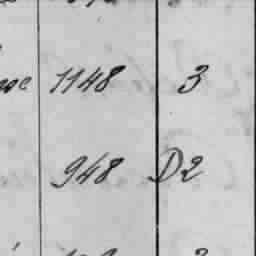 1148 3
948 D2